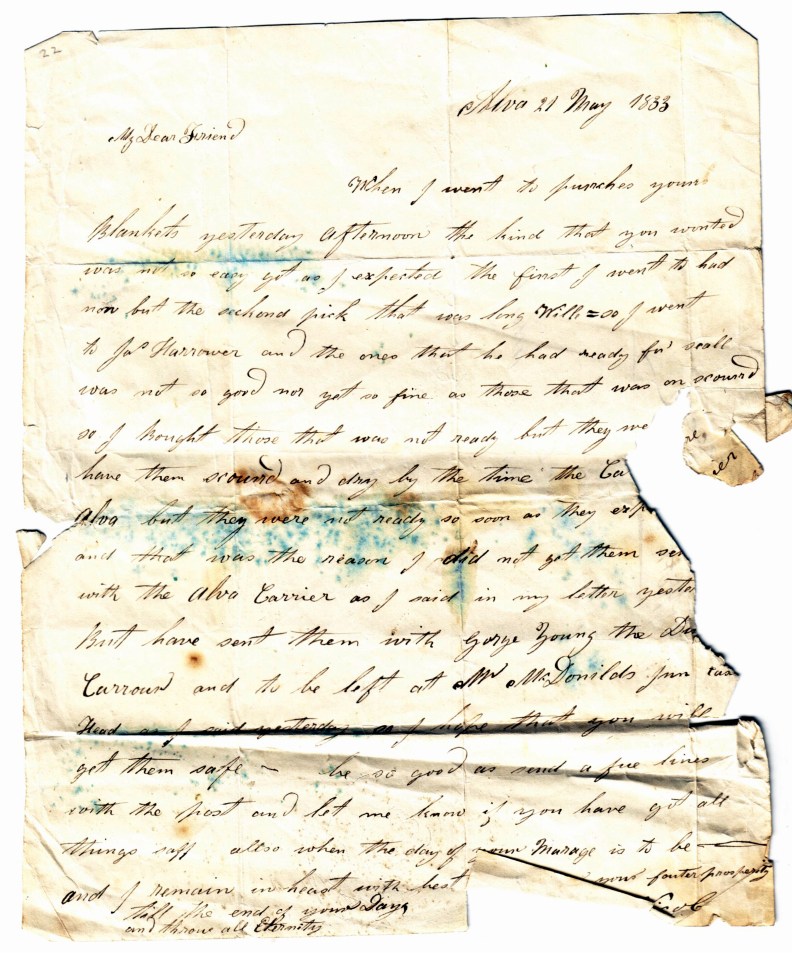 22
Alva 21 May 1833
My Dear Friend
When I went to purches your
Blankets yesterday afternoon the kind that you wonted
was not so easy got as I expected the first I went to had
non but the sechond pick that was long Will = so I went
to Jas Harrower and the ones that he had ready for seall
was not so good nor yet so fine as those that was on scourrd
so I Bought those that was not ready but they we
have them scourrd and dry by the time the Ca
Alva but they were not ready so soon as they exp
and that was the reason I did not get them sen
with the Alva Carrier as I said in my letter yester
But have sent them with Gorge Young the
Carrour and to be left at Mr McDonilds
Head as I said yesterday so I hope that you will
get them safe ~ be so good as send a fue lines
with the post and let me know if you have got all
things saff allso when the day of your Marage is to be
and I remain in heast with best
your prosperity
till the end of your Days
and throue all Eternity